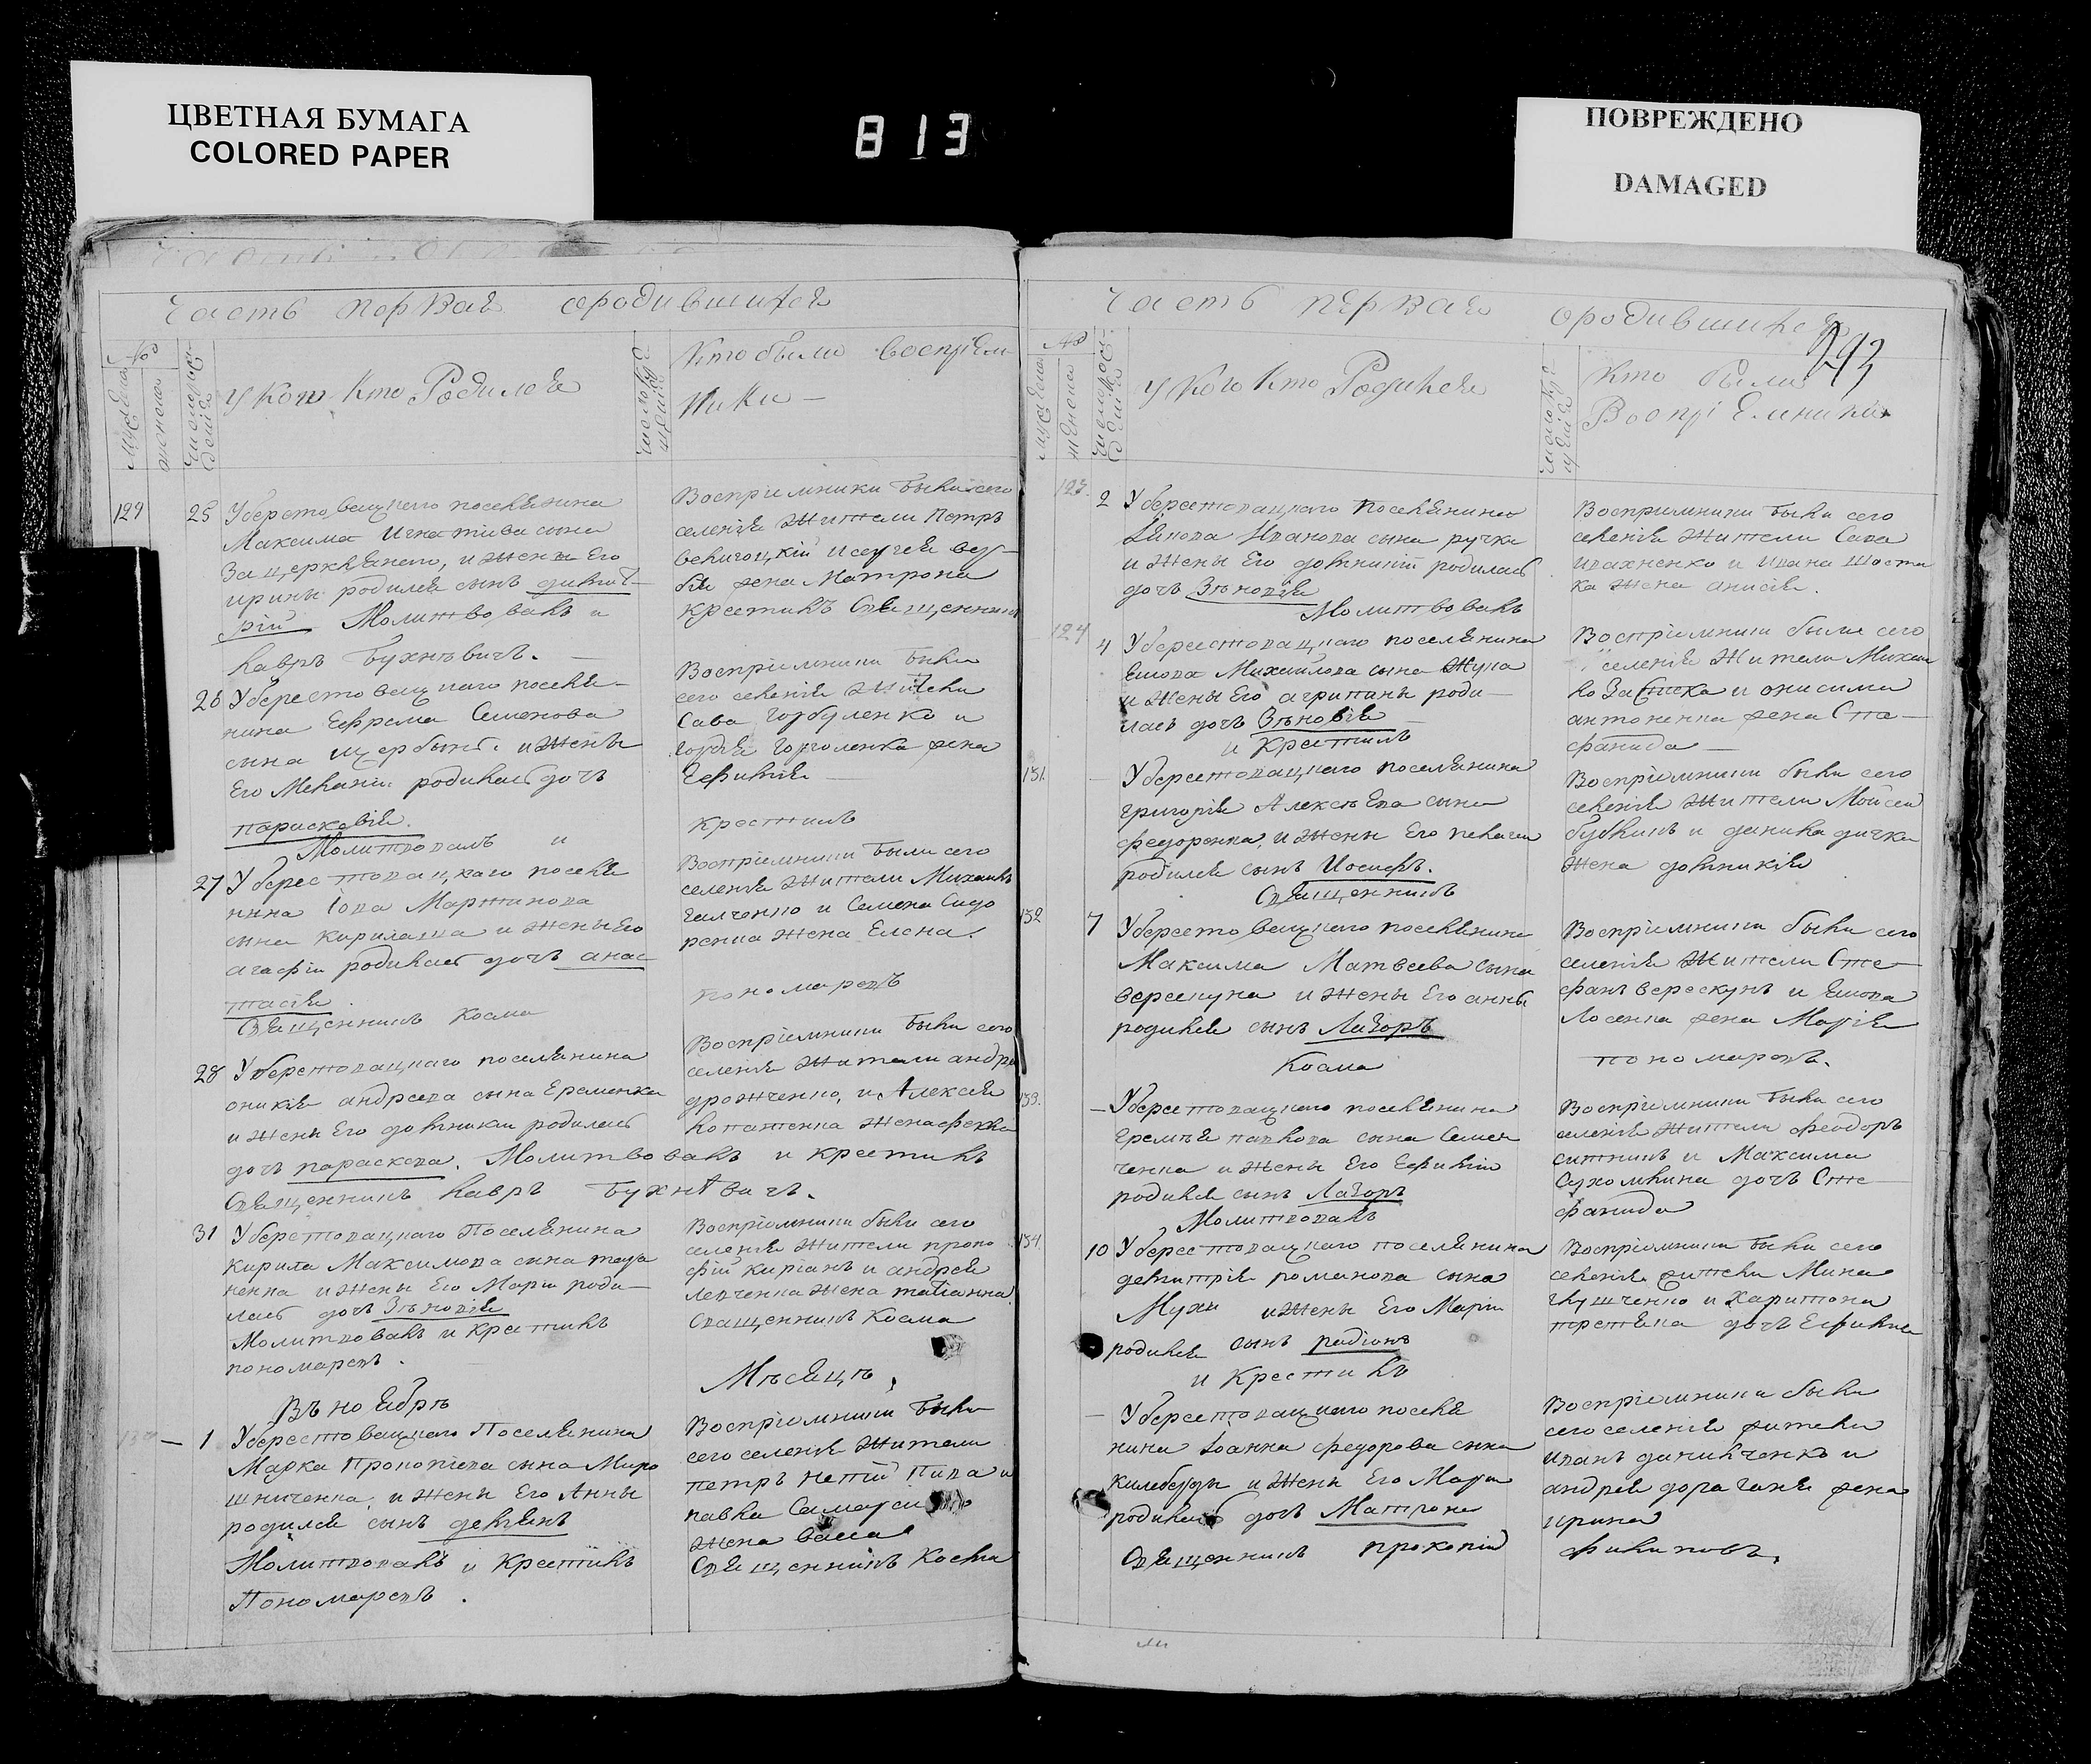 ЦВЕТНАЯ БУМАГА
COLORED PAPER
813
ПОВРЕЖДЕНО
DAMAGED
Часть первая ородившихся
№
мужеска
женска
число рождения
У кого Кто Родился
Кто были воспрiем-
ники –
129
25
Уберестовецкого поселянина
Максима Игнатиева сына
и жены Его
ирины родился сынъ димит-
рiй Молитвовалъ и
Лавръ Бухневичъ. –
Восприемники были сего
селенiя Жители Петръ
жена Матрона
крестилъ Священникъ
26
Уберестовецкого поселя-
нина Ефрема Семенова
сына и жены
Его Меланiи родилась дочь
парискевiя.
Молитвовалъ и
Воспрiемники были
сего селенiя Жители
Сава Горбуленко и
жена
Ефимiя –
крестилъ
27
Уберестовацкаго поселя
нина Iова Мартинова
сына кирилаша и жены Его
агафiи родилась дочь анас
тасiя.
Священникъ Косма
Воспрiемники были сего
селенiя Жители Михаилъ
Галченко и Семена Сидо
ренка жена Елена.
пономаревъ
28
Уберестовацкаго поселянина
оникiя андреева сына Еременка
и жены Его домникии родилась
дочь параскева. Молитвовалъ и крестилъ
Священникъ Лавръ Бухневичъ.
Воспрiемники были сего
селенiя Жители андрей
дрожченко, и Алексея
жена фекла
31
Уберестовацкаго Поселянина
Кирила Максимова сына
и жены Его Марiи роди-
лась дочь Зѣновiя
Молитвовалъ и крестилъ
пономаревъ.
Воспрiемники были сего
селенiя Жители проко
фiй кирiанъ и андрея
левченка жена татiанна
Священникъ Косма
Мѣсяцъ,
Въ ноябрѣ
130 – 1
Уберестовецкаго Поселянина
Марка Прокопiева сына Миро
шниченка, и жены Его Анны
родился сынъ демянъ
Молитвовалъ и Крестилъ
Пономаревъ.
Воспрiемники были
сего селенiя Жители
петръ и
павла
жена васса
Священникъ Косма
Часть первая ородившихся
293
№
мужеска
женска
У кого Кто Родился
Кто были
Воспрiемники
123.
2
Уберестовацкаго поселянина
Якова Иванова сына ручка
и жены Его домникии родилась
дочь Зѣновiя
Молитвовалъ
Восприемники были сего
селенiя Жители Сава
ивахненко и ивана Шоста
ка жена анисiя.
124
4
Уберестовацкаго поселянина
Якова Михайлова сына Жука
и жены Его агрипины роди-
лась дочь Зѣновiя –
и крестилъ
Воспрiемники были сего
селенiя Жители Михаи
ло и онисима
антоненка жена Сте-
фанида –
131. –
Уберестовацкаго поселянина
григорiя Алексѣева сына
федоренка, и жены Его пелагеи
родился сынъ Иосифъ.
Священникъ
Воспрiемники были сего
селенiя Жители Мойсей
и данила дичка
жена домникiя
132
7
Уберестовецкаго поселянина
Максима Матвеева сына
верескуна и жены Его анны
родился сынъ Лазоръ
Косма
Воспрiемники были сего
селенiя Жители Сте-
фанъ верескунъ и Якова
Лосенка жена Марiя
пономаревъ.
133. –
Уберестовацкаго поселянина
Еремѣя павлова сына Семен
ченка и жены Его Ефимiи
родился сынъ Лазоръ
Молитвовалъ
Воспрiемники были сего
селенiя Жители феодоръ
ситникъ и Максима
Сухомлина дочь Сте-
фанида
134
10
Уберестовацкаго поселянина
димитрiя романова сына
Мухи и жены Его Марiи
родился сынъ радiонъ
и крестилъ
Воспрiемники были сего
селенiя жители Мина
глущченко и Харитона
третяка дочь Ефимiя
–
Уберестовацкаго поселя
нина Iоанна федорова сына
килеберды и жены Его Марiи
родилась дочь Матрона
Священникъ прокопiй
Воспрiемники были
сего селенiя жители
иванъ данильченко и
андрея дорагана жена
ирина
филиповъ.